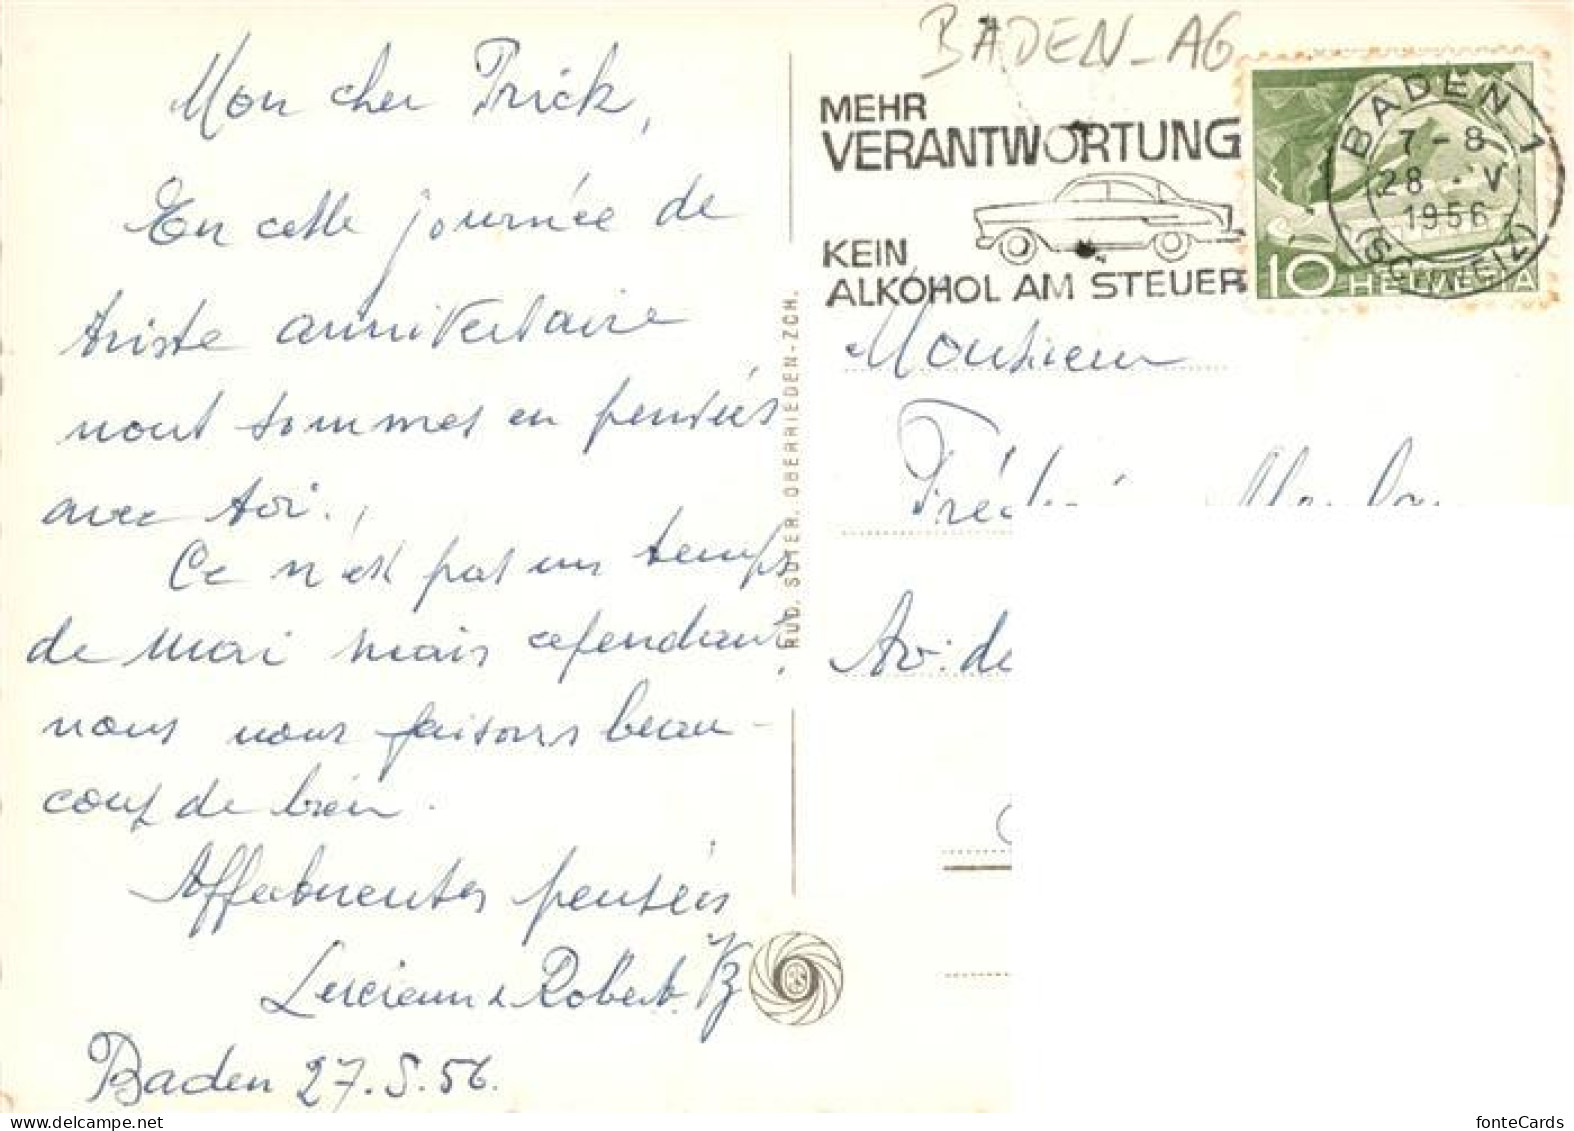 Mon cher Frick,
En cette journée de
triste anniversaire
nous sommes en pensées
avec toi.
Ce n'est pas un temps
de mai mais cependant
nous nous faisons beau-
coup de bien.
Affectueuses pensées
Lucienne & Robert
Baden 27.5.56.
RUD. SUTER, OBERRIEDEN-ZCH.
BADEN-AG
MEHR
VERANTWORTUNG
KEIN
ALKOHOL AM STEUER
BADEN 1
7-8
28.V
1956
(SCHWEIZ)
10 HELVETIA
Monsieur
Av: de
fonteCards